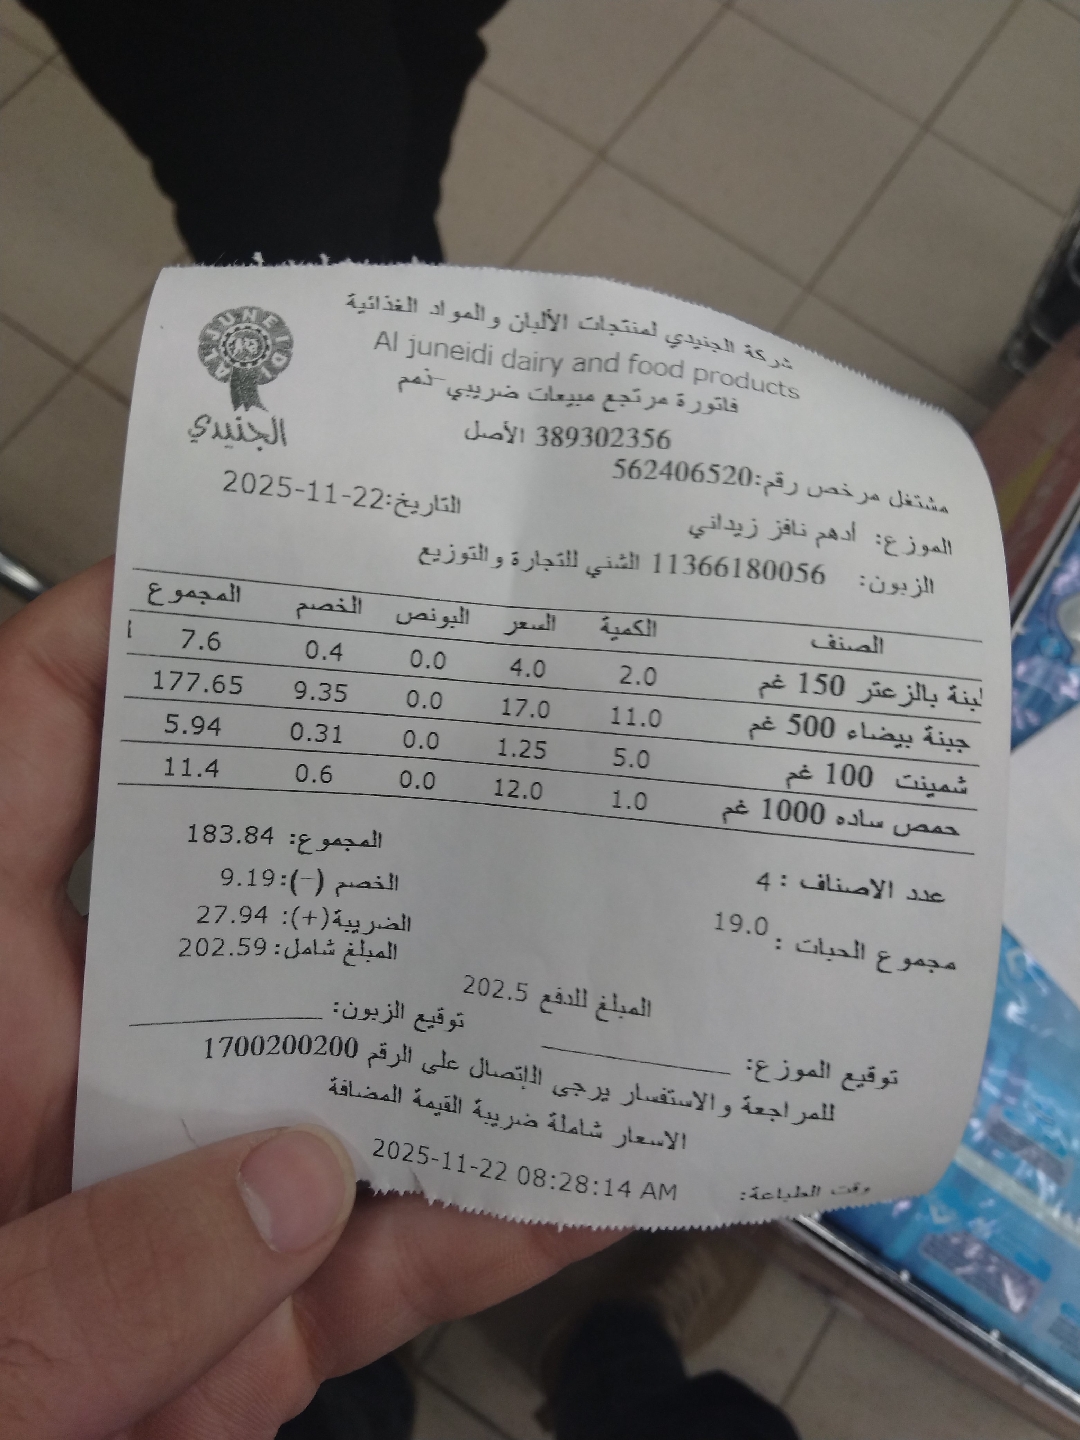 AL JUNEIDI
الجنيدي
شركة الجنيدي لمنتجات الألبان والمواد الغذائية
Al juneidi dairy and food products
فاتورة مرتجع مبيعات ضريبي-ذمم
389302356 الأصل
مشتغل مرخص رقم:562406520
التاريخ:2025-11-22
الموزع: أدهم نافز زيداني
الزبون: 11366180056 الشني للتجارة والتوزيع
الصنف الكمية السعر البونص الخصم المجموع
لبنة بالزعتر 150 غم 2.0 4.0 0.0 0.4 7.6
جبنة بيضاء 500 غم 11.0 17.0 0.0 9.35 177.65
شمينت 100 غم 5.0 1.25 0.0 0.31 5.94
حمص ساده 1000 غم 1.0 12.0 0.0 0.6 11.4
المجموع: 183.84
عدد الاصناف : 4
الخصم (-):9.19
مجموع الحبات : 19.0
الضريبة(+): 27.94
المبلغ شامل: 202.59
المبلغ للدفع 202.5
توقيع الموزع: ____________ توقيع الزبون: ____________
للمراجعة والاستفسار يرجى الإتصال على الرقم 1700200200
الاسعار شاملة ضريبة القيمة المضافة
وقت الطباعة: 2025-11-22 08:28:14 AM